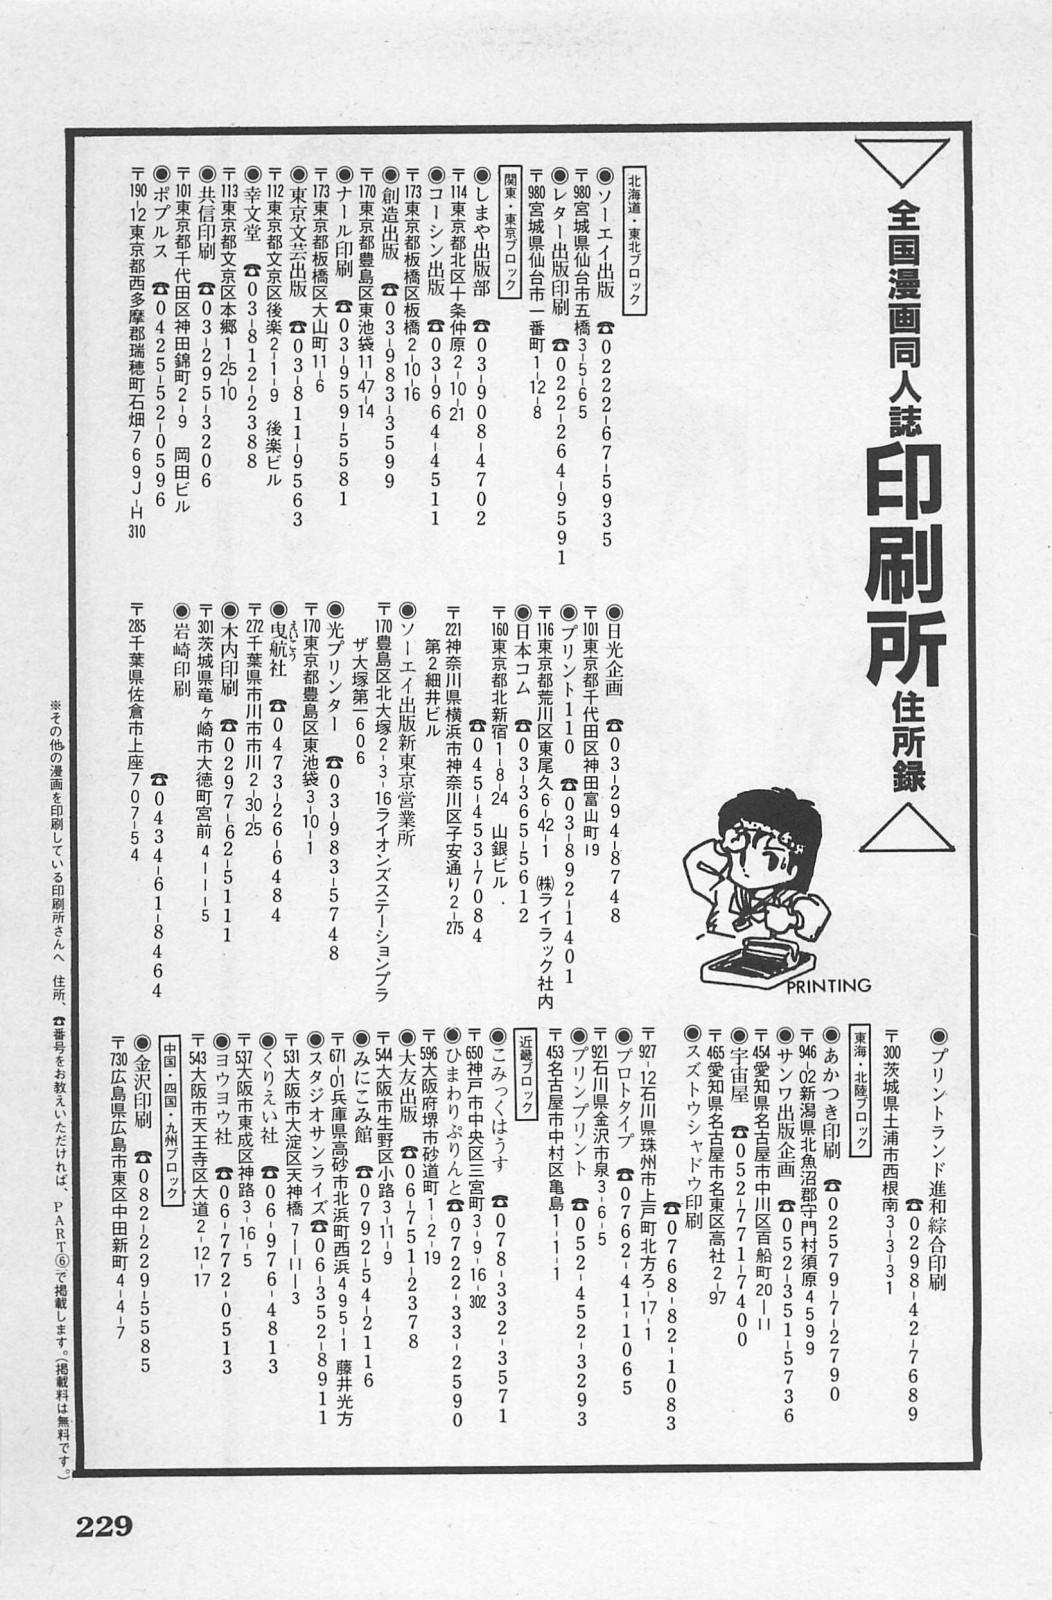 全国漫画同人誌印刷所住所録
北海道・東北ブロック
●ソーエイ出版 ☎0222-67-5935
〒980宮城県仙台市五橋3-5-65
●レター出版印刷 ☎022-264-9591
〒980宮城県仙台市一番町1-12-8
関東・東京ブロック
●しまや出版部 ☎03-908-4702
〒114東京都北区十条仲原2-10-21
●コーシン出版 ☎03-964-4511
〒173東京都板橋区板橋2-10-16
●創造出版 ☎03-983-3599
〒170東京都豊島区東池袋11-47-14
●ナール印刷 ☎03-959-5581
〒173東京都板橋区大山町11-6
●東京文芸出版 ☎03-811-9563
〒112東京都文京区後楽2-1-9 後楽ビル
●幸文堂 ☎03-812-2388
〒113東京都文京区本郷1-25-10
●共信印刷 ☎03-295-3206
〒101東京都千代田区神田錦町2-9 岡田ビル
●ポプルス ☎0425-52-0596
〒190-12東京都西多摩郡瑞穂町石畑769J-H310
●日光企画 ☎03-294-8748
〒101東京都千代田区神田富山町19
●プリント110 ☎03-892-1401
〒116東京都荒川区東尾久6-42-1 ㈱ライラック社内
●日本コム ☎03-365-5612
〒160東京都北新宿1-8-24 山銀ビル
☎045-453-7084
〒221神奈川県横浜市神奈川区子安通り2-275
第2細井ビル
●ソーエイ出版新東京営業所
〒170豊島区北大塚2-3-16ライオンズステーションプラ
ザ大塚第一606
●光プリンター ☎03-983-5748
〒170東京都豊島区東池袋3-10-1
えいこう
●曳航社 ☎0473-26-6484
〒272千葉県市川市市川2-30-25
●木内印刷 ☎0297-62-5111
〒301茨城県竜ヶ崎市大徳町宮前4-1-1-5
●岩崎印刷
☎0434-61-8464
〒285千葉県佐倉市上座707-54
PRINTING
●プリントランド進和綜合印刷
☎0298-42-7689
〒300茨城県土浦市西根南3-3-31
東海・北陸ブロック
●あかつき印刷 ☎02579-7-2790
〒946-02新潟県北魚沼郡守門村須原4599
●サンワ出版企画 ☎052-351-5736
〒454愛知県名古屋市中川区百船町20-11
●宇宙屋 ☎052-771-7400
〒465愛知県名古屋市名東区高社2-97
●スズトウシャドウ印刷
☎0768-82-1083
〒927-12石川県珠州市上戸町北方ろ-17-1
●プロトタイプ ☎0762-41-1065
〒921石川県金沢市泉3-6-5
●プリンプリント ☎052-452-3293
〒453名古屋市中村区亀島1-1-1
近畿ブロック
●こみっくはうす ☎078-332-3571
〒650神戸市中央区三宮町3-9-16-302
●ひまわりぷりんと☎0722-33-2590
〒596大阪府堺市砂道町1-2-19
●大友出版 ☎06-751-2378
〒544大阪市生野区小路3-11-9
●みにこみ館 ☎0792-54-2116
〒671-01兵庫県高砂市北浜町西浜495-1 藤井光方
●スタジオサンライズ☎06-352-8911
〒531大阪市大淀区天神橋7-11-3
●くりえい社 ☎06-976-4813
〒537大阪市東成区神路3-16-5
●ヨウヨウ社 ☎06-772-0513
〒543大阪市天王寺区大道2-12-17
中国・四国・九州ブロック
●金沢印刷 ☎082-229-5585
〒730広島県広島市東区中田新町4-4-7
※その他の漫画を印刷している印刷所さんへ 住所、☎番号をお教えいただければ、PART⑥で掲載します。(掲載料は無料です。)
229